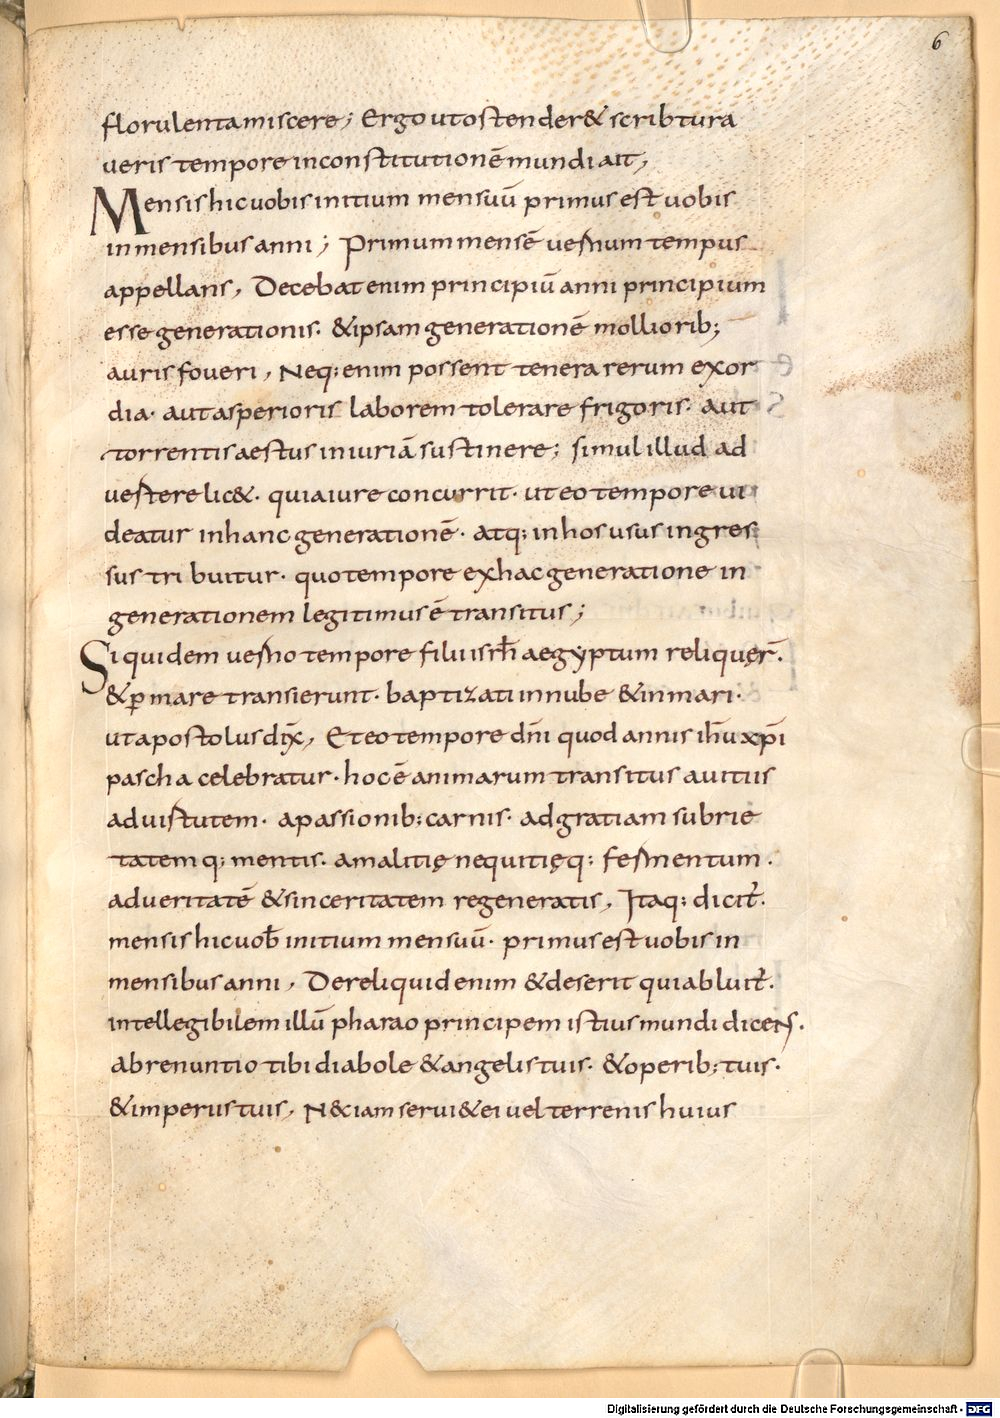 6
florulenta miscere; Ergo ut ostender& scribtura
ueris tempore in constitutionē mundi ait,
Mensis hic uobis initium mensuū primus est uobis
in mensibus anni; Primum mensē uernum tempus
appellans, Decebat enim principiū anni principium
esse generationis. &ipsam generationē molliorib;
auris foueri, Neq; enim possent tenera rerum exor
dia. aut asperioris laborem tolerare frigoris. aut
torrentis aestus iniuriā sustinere; simul illud ad
uertere lic&. quia iure concurrit. ut eo tempore ui
deatur in hanc generationē. atq; in hos usus ingres
sus tribuitur. quo tempore ex hac generatione in
generationem legitimus ē transitus;
Siquidem uerno tempore filii isrl̄ aegyptum reliquer̄.
&ꝑ mare transierunt. baptizati in nube & in mari.
ut apostolus dix̄, Et eo tempore dn̄i quod annis ih̄u xp̄i
pascha celebratur. hoc ē animarum transitus a uitiis
ad uirtutem. a passionib; carnis. ad gratiam subrie
tatemq; mentis. a malitię nequitięq; fermentum.
ad ueritatē & sinceritatem regeneratis, Itaq; dicit̄.
mensis hic uob̄ initium mensuū. primus est uobis in
mensibus anni, Dereliquid enim & deserit qui abluit̄.
intellegibilem illū pharao principem istius mundi dicens.
Abrenuntio tibi diabole & angelis tuis. & operib; tuis.
& imperiis tuis, N& iam serui& ei uel terrenis huius
Digitalisierung gefördert durch die Deutsche Forschungsgemeinschaft - DFG